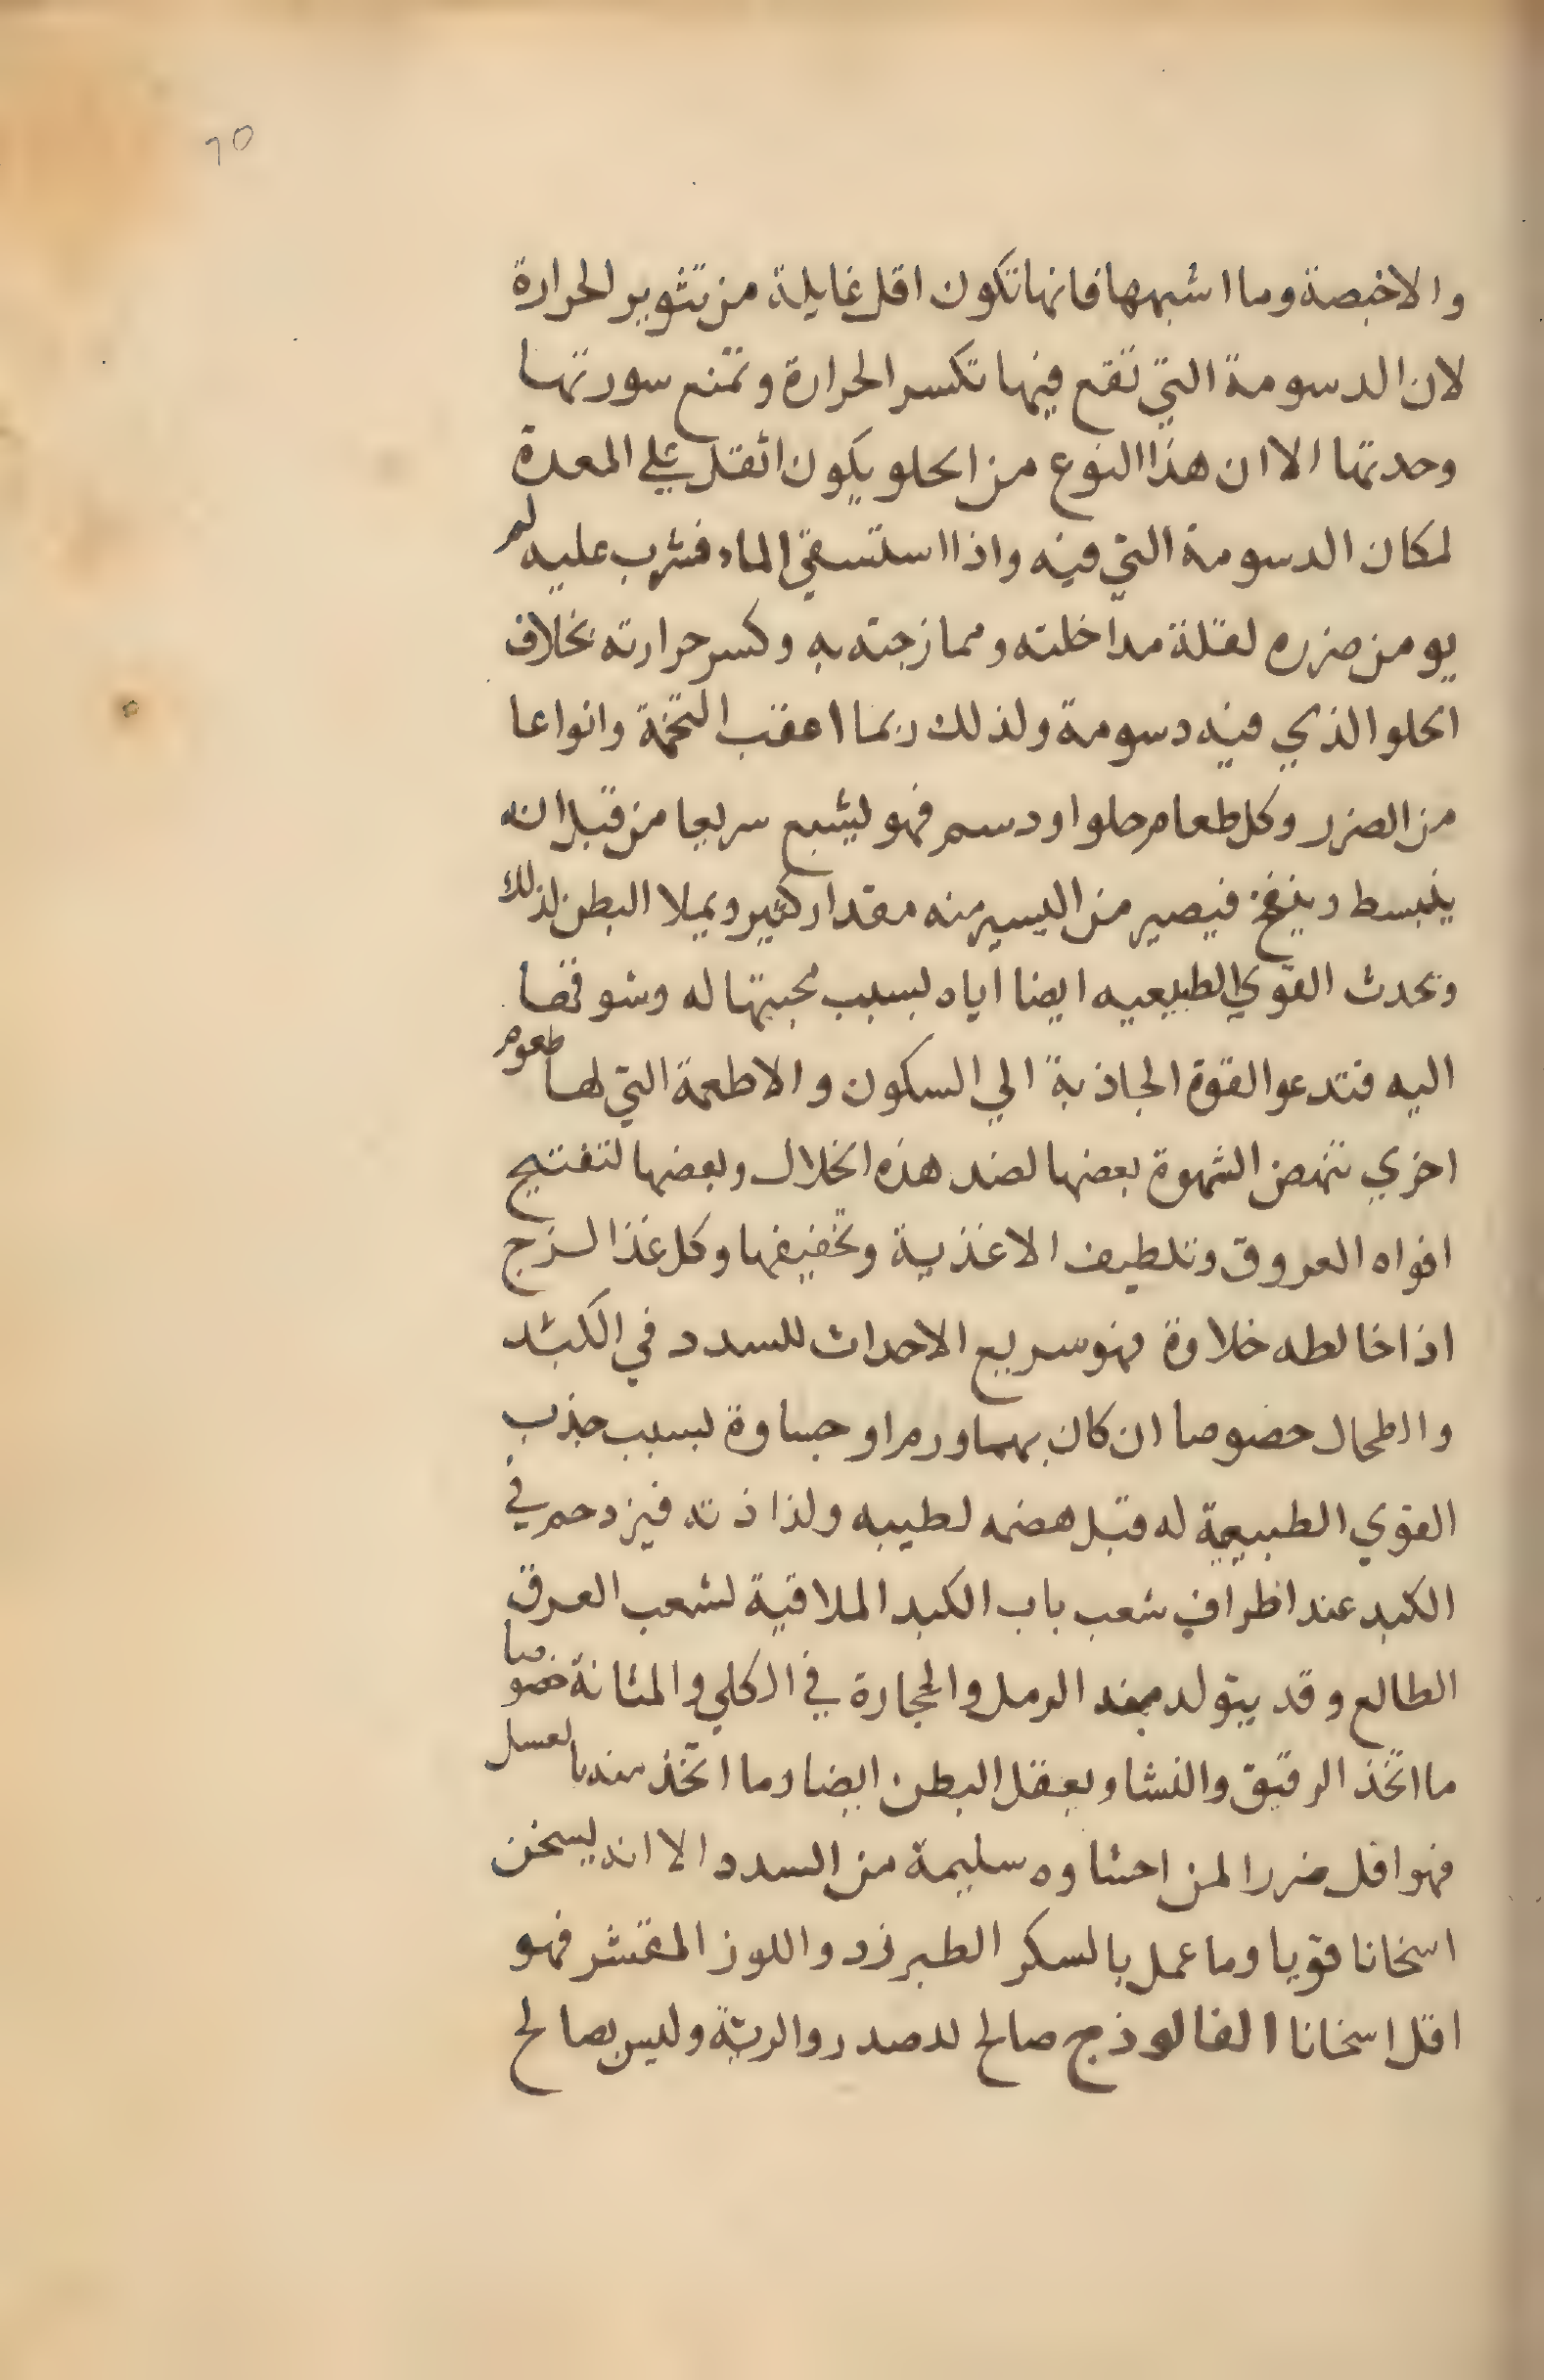 ٦٥
والاخبصة وما اشبهها فانها تكون اقل غايلة من تثوير الحرارة
لان الدسومة التي تقع فيها تكسر الحرارة وتمنع سورتها
وحدتها الا ان هذا النوع من الحلو يكون اثقل علي المعدة
لمكان الدسومة التي فيه واذا استسقي الماء فشرب عليه لم
يومن ضرره لقلة مداخلته وممازجته به وكسر حرارته بخلاف
الحلو الذي فيه دسومة ولذلك ربما اعقب التخمة وانواعا
من الضرر وكل طعام حلو او دسم فهو يشبع سريعا من قبل انه
ينبسط وينفخ فيصير من اليسير منه مقدار كثير ويملا البطن لذلك
وتحدث القوي الطبيعيه ايضا اياه لسبب محبتها له وشوقها
اليه فتدعوا القوة الجاذبة الي السكون والاطعمة التي لها طعوم
اخري تنهض الشهوة بعضها لضد هذه الخلال وبعضها لتفتيح
افواه العروق وتلطيف الاغذية وتخفيفها وكل غذا لزج
اذا خالطه حلاوة فهو سريع الاحداث للسدد في الكبد
والطحال خصوصا ان كان بهما ورم او جساوة لسبب جذب
القوي الطبيعية له قبل هضمه لطيبه ولذاذته فيزدحم في
الكبد عند اطراف شعب باب الكبد الملاقية لشعب العرق
الطالع وقد يتولد منه الرمل والحجارة في الكلي والمثانة خصوصا
ما اتخذ الرقيق والنشا ويعقل البطن ايضا وما اتخذ منه بالعسل
فهو اقل ضررا لمن احشاوه سليمة من السدد الا انه يسخن
اسخانا قويا وما عمل بالسكر الطبرزد واللوز المقشر فهو
اقل اسخانا الفالوذج صالح للصدر والرئة وليس بصالح